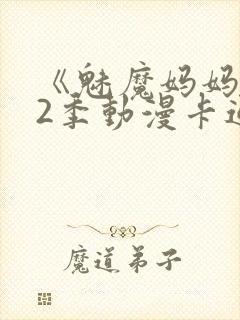 《魅魔妈妈
2季動漫卡通
魔道弟子